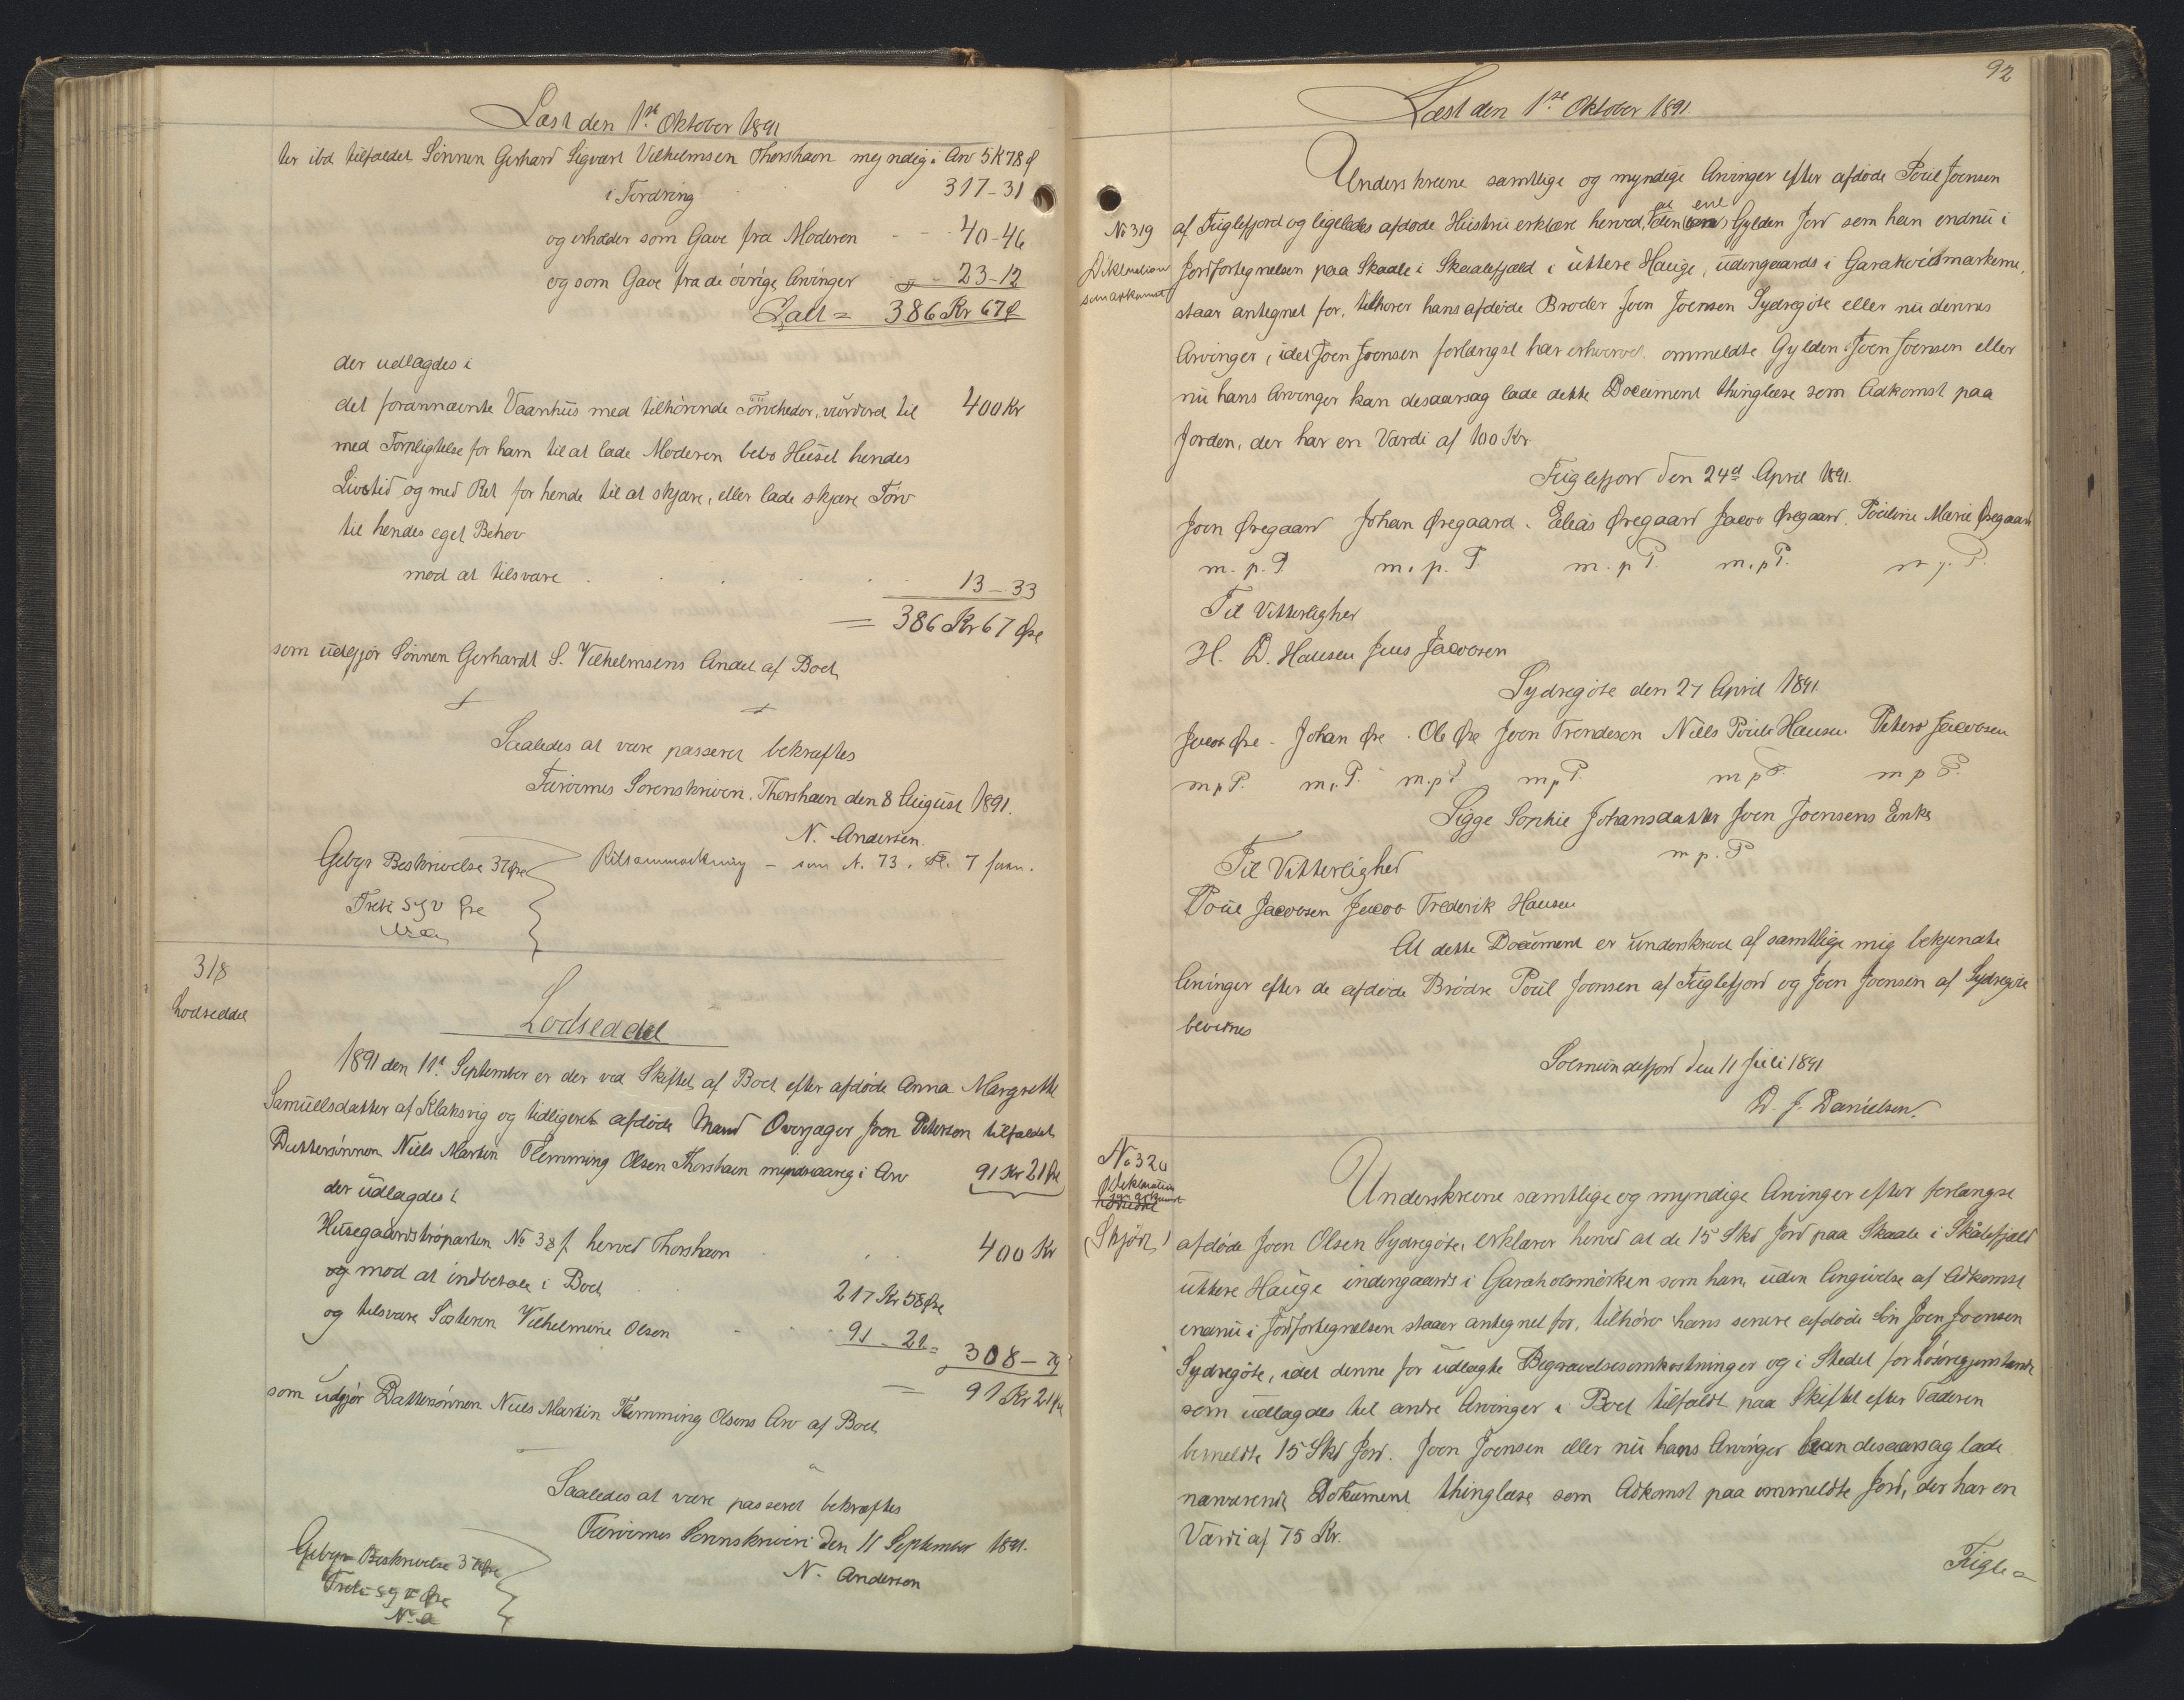 Læst den 1ste Oktober 1891
ter ibd tilfaldet Sönnen Gerhard Sigvart Vilhelmsen Thorshavn myndig i Arv 5 K 78 ø
i Fordring 317-31
og erholder som Gave fra Moderen 40-46
og som Gave fra de övrige Arvinger 23-12
Ialt = 386 Kr 67 ø
der udlagdes i
det forannævnte Vaanhus med tilhörende Törveheder, vurderet til 400 Kr
med Forpligtelse for ham til at lade Moderen bebo Huset hendes
Livstid og med Ret for hende til at skjære, eller lade skjære Törv
til hendes eget Behov
mod at tilsvare 13-33
= 386 Kr 67 Øre
som udgjör Sönnen Gerhardt S. Vilhelmsens Andel af Boet
Saaledes at være passeret bekræftes
Færöernes Sorenskriveri, Thorshavn den 8 August 1891.
N. Andersen.
Gebyr Beskrivelse 37 Øre
Retsanmærkning - som N. 73. 7 foran.
318
Lodseddel
Lodseddel
1891 den 11t September er der ved Skiftet af Boet efter afdöde Anna Margrethe
Samuelsdatter af Klaksvig og tidligere afdöde Mand Overjager Joen Peterson tilfaldet
Dattersönnen Niels Martin Flemming Olsen Thorshavn mindreaarig i Arv 91 Kr 21 Øre
der udlagdes i
Husegaardstroparten No 38 f. herved Thorshavn 400 Kr
og mod at indbetale i Boet 217 Kr 58 Øre
og tilsvare Søsteren Vilhelmine Olsen 91-21 = 308-79
= 91 Kr 21 Øre
som udgjör Dattersönnen Niels Martin Flemming Olsens Arv af Boet
Saaledes at være passeret bekræftes
Færöernes Sorenskriveri den 11 September 1891.
N. Andersen
Gebyr Beskrivelse 37 Øre
N. A
92
Læst den 1ste Oktober 1891
Underskrevne samtlige og myndige Arvinger efter afdöde Poul Joensen
No 319 af Fuglefjord og ligeledes afdöde Hustru erklære herved, at den ene Gylden Jord som han endnu i
Deklaration som adkomst
Jordfortegnelsen paa Skaale i Skaalefjæld i uttere Hauge, udengaards i Garakvidsmarkerne,
staar antegnet for, tilhører hans afdöde Broder Joen Joensen Sydregöte eller nu dennes
Arvinger, idet Joen Joensen forlængst har erhvervet ommeldte Gylden. Joen Joensen eller
nu hans Arvinger kan desaarsag lade dette Document thinglæse som Adkomst paa
Jorden, der har en Værdi af 100 Kr.
Fuglefjord den 24d April 1891.
Joen Øregaard Johan Øregaard. Elias Øregaard Jacob Øregaard. Pouline Marie Øregaard
m. p. P. m. p. P. m. p. P. m. p. P. m. p. P.
Til Vitterlighed
H. D. Hansen Jens Jacobsen
Sydregöte den 27 April 1891
Jacob Øre - Johan Øre . Ole Øre Joen Trondesen Niels Pouli Hansen Peters Jacobsen
m p P. m. P. m. p P. m p P. m p P. m p P.
Sigge Sophie Johansdatter Joen Joensens Enke
m p. P
Til Vitterlighed
Poul Jacobsen Jacob Frederik Hansen
At dette Document er underskrevet af samtlige mig bekjendte
Arvinger efter de afdöde Brödre Poul Joensen af Fuglefjord og Joen Joensen af Sydregöte
bevidnes
Solmundefjord den 11 Juli 1891
D. J. Danielsen.
No 320
Deklaration som adkomst
(Skjöde)
Underskrevne samtlige og myndige Arvinger efter forlængst
afdöde Joen Olsen Sydregöte, erklærer herved at de 15 Skd Jord paa Skaale i Skålefjæld
uttere Hauge indengaards i Garaholsmörken som han uden Angivelse af Adkomst
endnu i Jordfortegnelsen staaer antegnet for, tilhörer hans senere afdöde Sön Joen Joensen
Sydregöte, idet denne for udlagte Begravelsesomkostninger og i Stedet for Lösöregjenstande
som udlagdes til andre Arvinger i Boet tilfaldt paa Skiftet efter Faderen
bemeldte 15 Skd Jord. Joen Joensen eller nu hans Arvinger kan desaarsag lade
nærværende Dokument thinglæse som Adkomst paa ommeldte Jord, der har en
Værdi af 75 Kr.
Fugle=